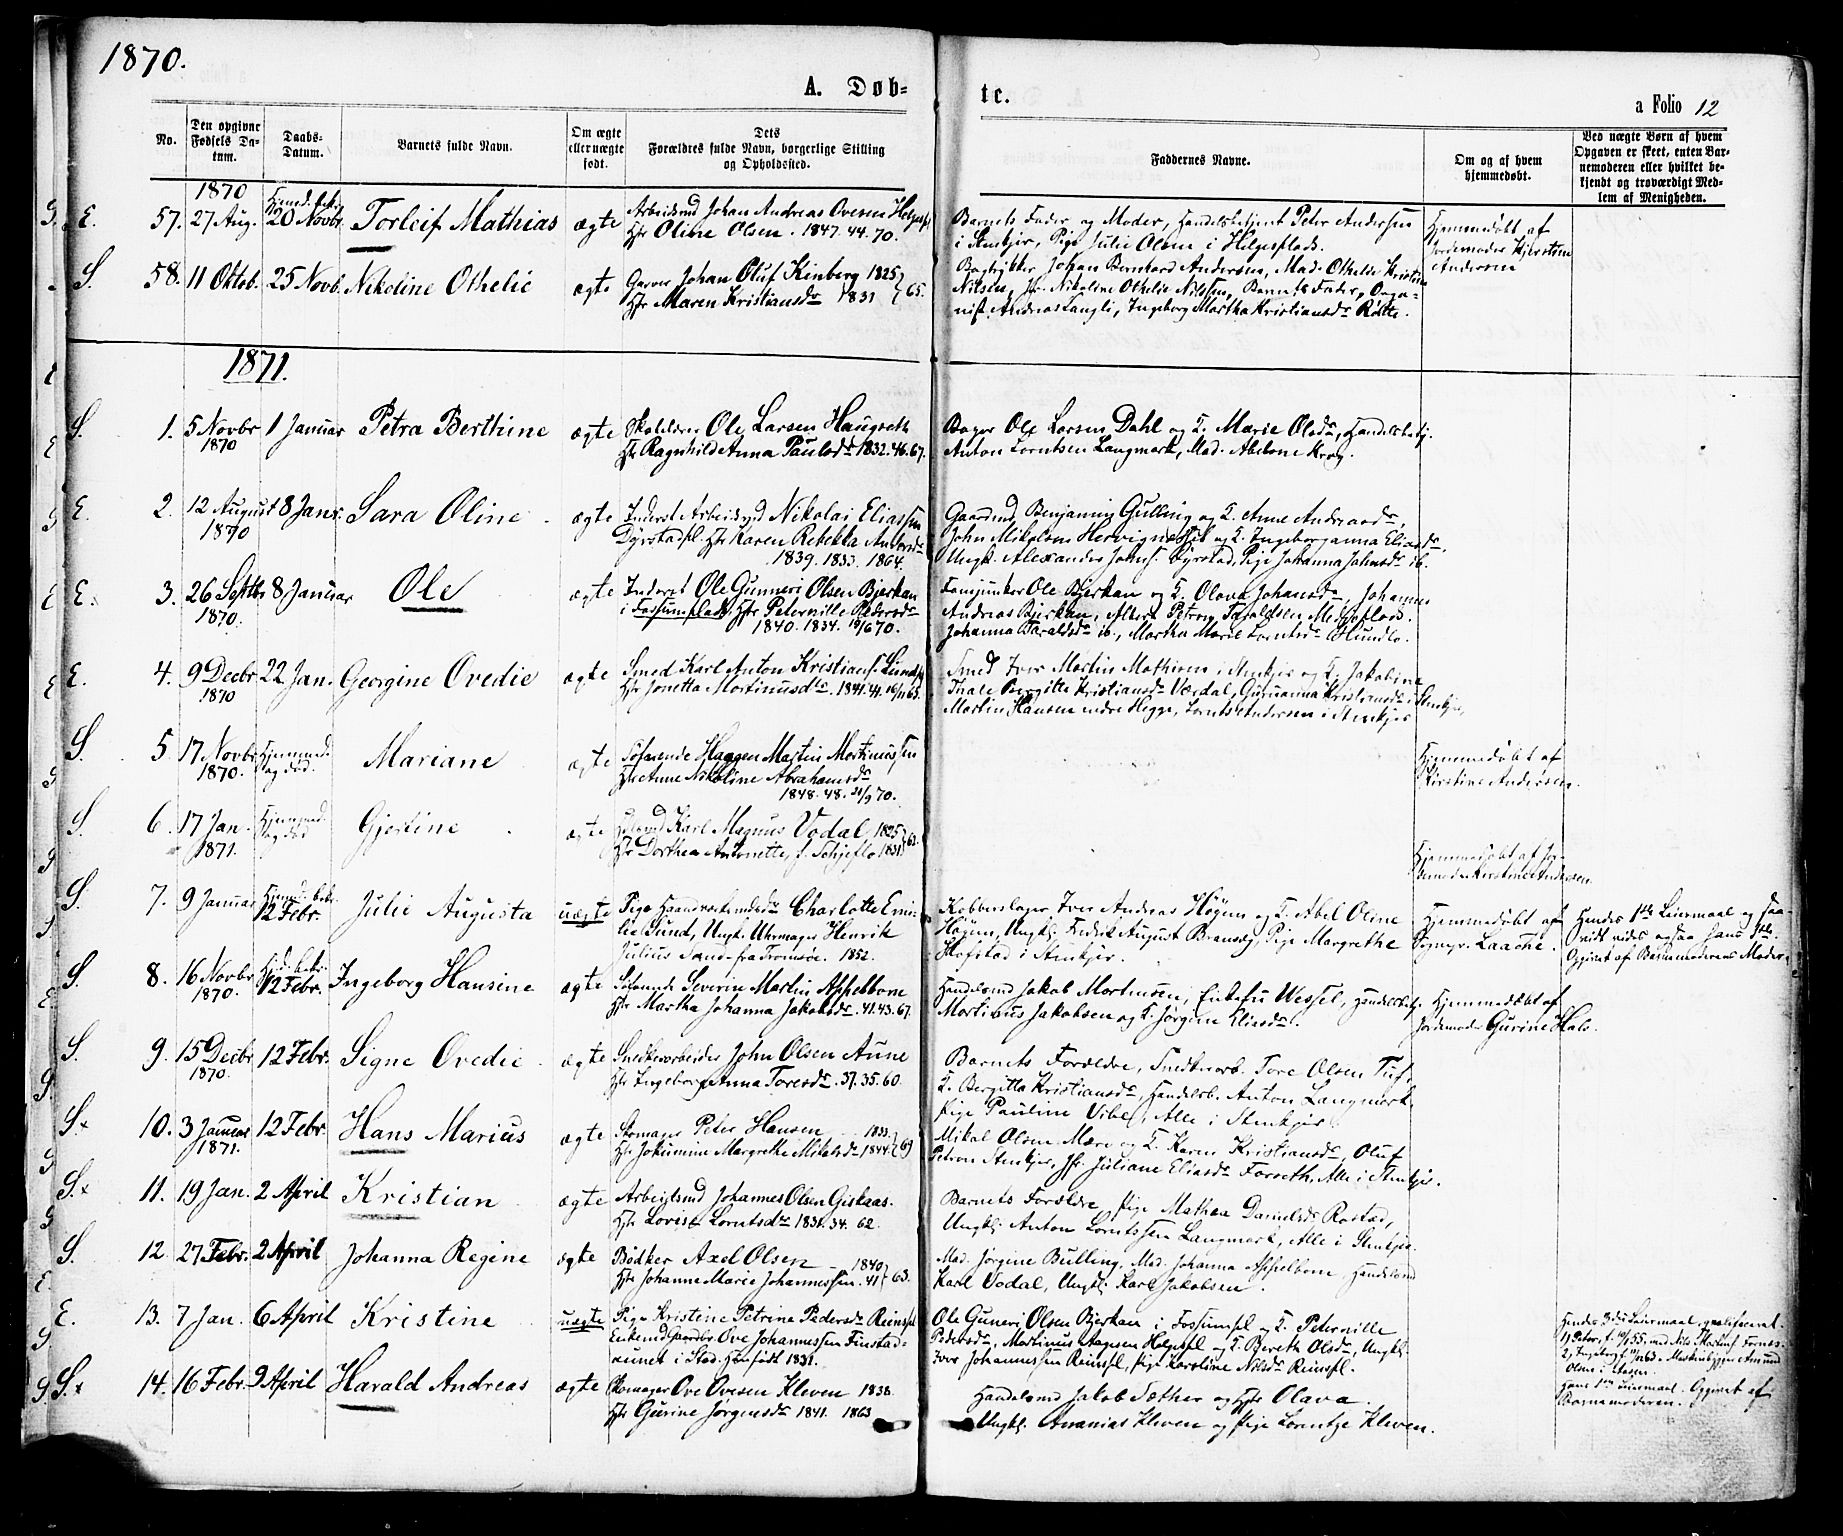 1870.
A. Døb-
te.
a Folio 12
No.
Den opgivne Fødsels Da-tum.
Daabs-Datum.
Barnets fulde Navn.
Om ægte eller uægte født.
Dets Forældres fulde Navn, borgerlige Stilling og Opholdssted.
Faddernes Navne.
Om og af hvem hjemmedøbt.
Ved uægte Børn af hvem Opgaven er skeet, enten Bar-nemoderen eller hvilket be-kjendt og troværdigt Med-lem af Menigheden.
1870
E. 57. 27 Aug. Hjemd. bekr. 20 Novbr Torleif Mathias ægte
Arbeidsmd Johan Andreas Ovesen Helgespl
Hfr Oline Olsen . 1847. 44. 70.
Barnets Fader og Moder, Handelsbetjent Peter Andersen
i Stenkjer, Pige Julie Olsen i Helgesplads.
Hjemmedøbt af
Jordemoder Kjerstine
Andersen
S. 58. 11 Oktob. 25 Novb. Nikoline Othelie ægte
Garver Johan Oluf Kinberg 1825
Hfr Maren Kristiansdr 1831 } 65.
Bogtrykker Johan Bernhard Andersen, Mad. Othelde Kristine
Nilsen, Jfr. Nikoline Othelie Nilssen, Barnets Fader, Orga-
nist Andreas Langli, Ingeborg Martha Kristiansdr Røste.
1871.
S. 1. 5 Novbr 1870 1 Januar Petra Berthine ægte
Skolelærer Ole Larsen Haugreth
Hfr Ragnhild Anna Paulsdr 1832. 46. 67.
Bager Ole Larsen Dahl og K. Marie Olsdr, Handelsbetj.
Anton Lorntsen Langmark, Mad. Abelone Krog.
E. 2. 12 August 1870 8 Janr. Sara Oline ægte
Inderst Arbeidsmd Nikolai Eliassen
Dyrstadpl. Hfr Karen Rebekka Andersdr
1839. 1833. 1864.
Gaardmd Benjamin Gulling og K. Anne Andreasdr,
John Mikalsen Hervignesset og K. Ingeboranna Eliasdr,
Ungk. Alexander Johns. Dyrstad, Pige Johanna Johnsdr ib.
E. 3. 26 Septbr 1870. 8 Januar Ole ægte
Inderst Ole Gunneri Olsen Bjerkan
i Fossumplads, Hfr Peternille Pedersdr
1840. 1834. 70.
Ole Bjerkan og K. Olava Johansdr, Johannes
Andreas Bjerkan, Albert Petter Taraldsen
Johanna Taraldsdr ib., Martha Marie Lorntsdr
E. 4. 9 Decbr 1870 22 Jan. Georgine Ovedie ægte
Smed Karl Anton Kristians.
Hfr Jonetta Martinusdr. 1841. 41. 63.
Smed Iver Martin Mathisen i Stenkjer og K. Jakobine
Bergitte Kristiansdr Værdal, Kristiansdr i Stenkjer,
Martin Hansen nedre Hegge, Lornts Andersen i Stenkjer
S. 5. 17 Novbr 1870. Hjemmed. og død. Mariane ægte
Søfarende Haagen Martin Martinussen
Hfr Anne Nikoline Abrahamsdr
1848. 48. 21/9 70.
Hjemmedøbt af
Kirstine Anderssen.
S. 6. 17 Jan. 1871. Hjemmed. og død Gjertine ægte
Karl Magnus Vodal 1825
Hfr Dorthea Antonette, f. Schjeflo 1831 }
Hjemmedøbt af Jor-
demoder Kirstine Andersen.
S. 7. 9 Januar Hjemd. bekr. 12 Febr. Julie Augusta uægte
Pige Haandværkersdatr Charlotte Emi-
lie Sund, Ungk. Uhrmager Henrik
Julius Sand fra Tromsøe. 1852.
Kobberslager Iver Andreas Høgem og K. Abel Oline
Høgem, Ungk. Fredrik August Pige Margrethe
Hofstad i Stenkjer.
Hjemmedøbt af
Sogнepr. Laache.
Hendes 1ste Leiermaal og saa-
vidt vides ogsaa hans 1ste.
Opgivet af Barnemoderens Moder.
S. 8. 16 Novbr 1870. Hjd. bekr. 12 Febr. Ingeborg Hansine ægte
Søfarende Severin Martin Appelbone
Hfr Martha Johanna Jakobsdr. 41. 43. 67.
Handelsmd Jakob Mortensen, Enkefru Wessel, Handelsbetj.
Martinus Jakobsen og K. Jørgine Eliasdr.
Hjemmedøbt af
Jordemoder Gurine Hals.
S. 9. 15 Decbr 1870. 12 Febr. Signe Ovedie ægte
Snedkerarbeider John Olsen Aune
Hfr Ingeborg Anna Toresdr. 37. 35. 60.
Barnets Forældre, Snedkerarb. Tore Olsen Tuf,
K. Bergitta Kristiansdr, Handelsb. Anton Langmark,
Pige Pauline Vibe, Alle i Stenkjer.
S. 10. 3 Januar 1871. 12 Febr. Hans Marius ægte
Skomager Peter Hansen 1833
Hfr Jokumine Margrethe Mikalsdr 1844 } 69
Mikal Olsen Mære og K. Karen Kristiansdr, Oluf
Petersen Stenkjer, Jfr. Juliane Eliasdr Forseth, Alle i Stenkjer.
S. 11. 19 Jan. 2 April Kristian ægte
Arbeidsmd Johannes Olsen Giskaas.
Hfr Lovise Lorntsdr 1831. 34. 62.
Barnets Forældre, Pige Mathea Danielsdr Rostad,
Ungk. Anton Lorntssen Langmark, Alle i Stenkjer.
S. 12 27 Febr. 2 April Johanna Regine ægte
Bødker Axel Olsen 1840
Hfr Johanne Marie Johannessen . 41 } 63.
Mad. Jørgine Bulling, Mad. Johanna Appelbom, Handelsmd
Karl Vodal, Ungk. Karl Jakobsen.
E. 13. 7 Jan. 6 April Kristine uægte
Pige Kristine Petrine Pedersdr Reinspl
Enkemd Ove Johannessen Finstad-
aunet i Stod. Hun født 1831.
Ole Guneri Olsen Bjerkan i Fossumpl og K. Peternille
Pedersdr, Martinus Aagesen Helgespl og K. Bereth Olsdr, Ungk.
Iver Johannessen Reinspl, Pige Karoline Nilsdr Reinspl.
Hendes 3die Leiermaal, qvalificeret.
1) Peter, f. 55. med Nils
2) Ingeborg 63. Maskinbygger Amund
Olsen
Hans 1ste Leiermaal. Opgivet af
Barnemoderen.
S. 14. 16 Febr. 9 April Harald Andreas ægte
Skomager Ove Ovesen Kleven 1838.
Hfr Gurine Jørgensdr 1841. 1863
Handelsmd Jakob Sæther og Hfr Olava.
Ungk. Ananias Kleven og Pige Lorntze Kleven.